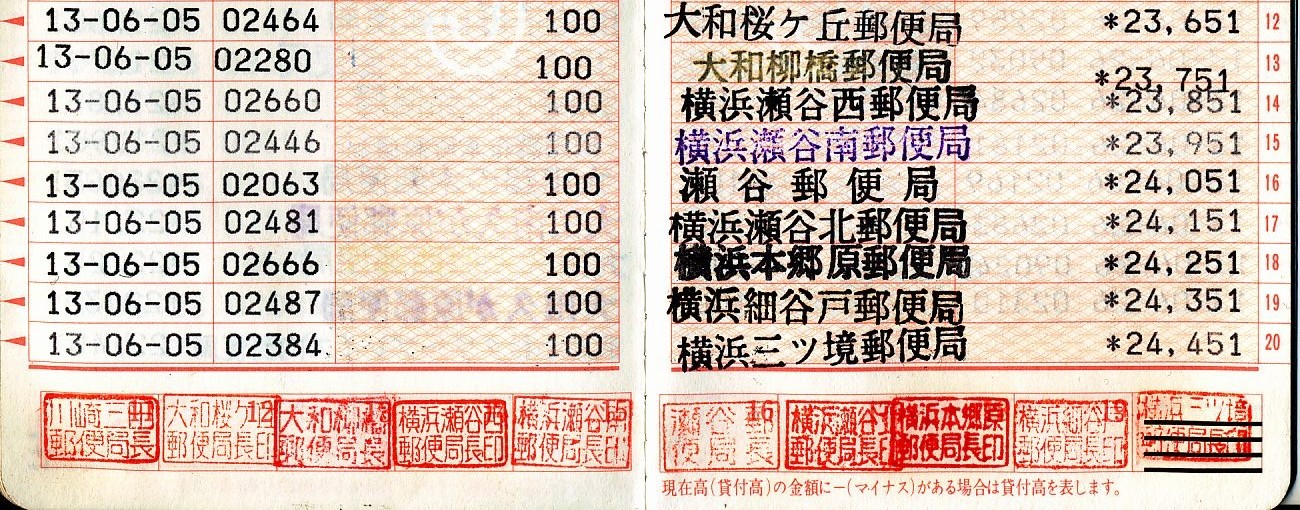 13-06-05 02464 100 大和桜ケ丘郵便局 *23,651 12
13-06-05 02280 100 大和柳橋郵便局 *23,751 13
13-06-05 02660 100 横浜瀬谷西郵便局 *23,851 14
13-06-05 02446 100 横浜瀬谷南郵便局 *23,951 15
13-06-05 02063 100 瀬谷郵便局 *24,051 16
13-06-05 02481 100 横浜瀬谷北郵便局 *24,151 17
13-06-05 02666 100 横浜本郷原郵便局 *24,251 18
13-06-05 02487 100 横浜細谷戸郵便局 *24,351 19
13-06-05 02384 100 横浜三ツ境郵便局 *24,451 20
川崎三田 大和桜ケ12 大和 横浜瀬谷西 横浜瀬谷 15 瀬谷郵 16 横浜瀬谷 横浜本郷原 横浜細谷 19 横浜三ツ境
郵便局長 郵便局長印 郵便局長 郵便局長印 郵便局長印 便局長 郵便局長印 郵便局長印 郵便局長印 郵便局長印
現在高(貸付高)の金額に−(マイナス)がある場合は貸付高を表します。